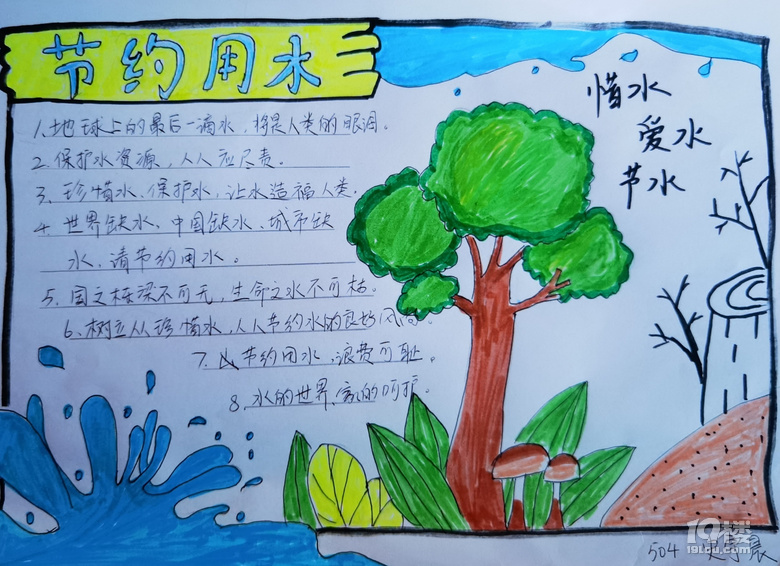 节约用水
惜水
爱水
节水
1、地球上的最后一滴水,将是人类的眼泪。
2、保护水资源,人人应尽责。
3、珍惜水、保护水,让水造福人类。
4、世界缺水、中国缺水、城市缺
水,请节约用水。
5、国之栋梁不可无,生命之水不可枯。
6、树立人人珍惜水,人人节约水的良好风尚。
7、节约用水,浪费可耻。
8、水的世界,的呵护。
504
19楼
19lou.com